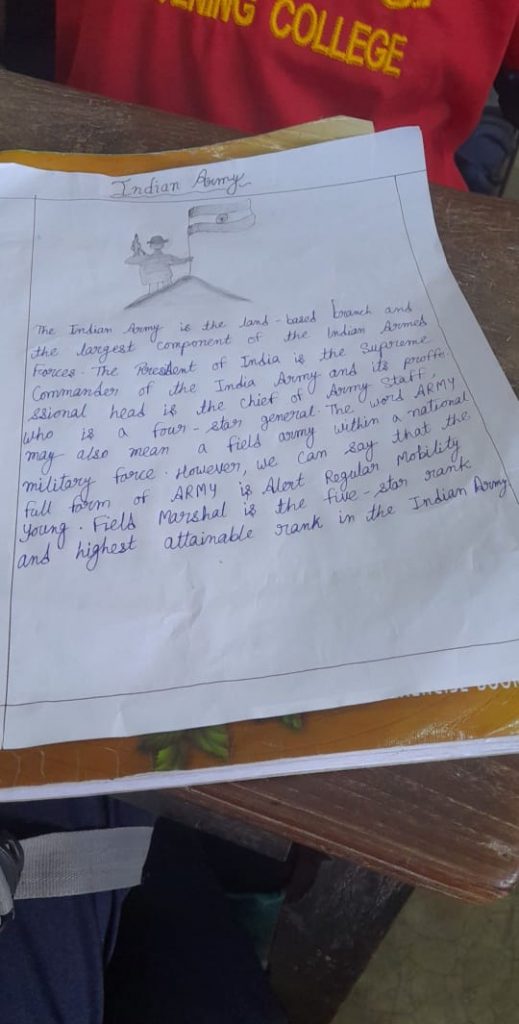 ENING COLLEGE
Indian Army
The Indian Army is the land-based branch and
the largest component of the Indian Armed
Forces. The President of India is the Supreme
Commander of the India Army and its proffe
ssional head is the chief of Army Staff,
who is a four-star general. The word ARMY
may also mean a field army within a national
military force. However, we can say that the
full form of ARMY is Alert Regular Mobility
Young. Field Marshal is the five-star rank
and highest attainable rank in the Indian Army